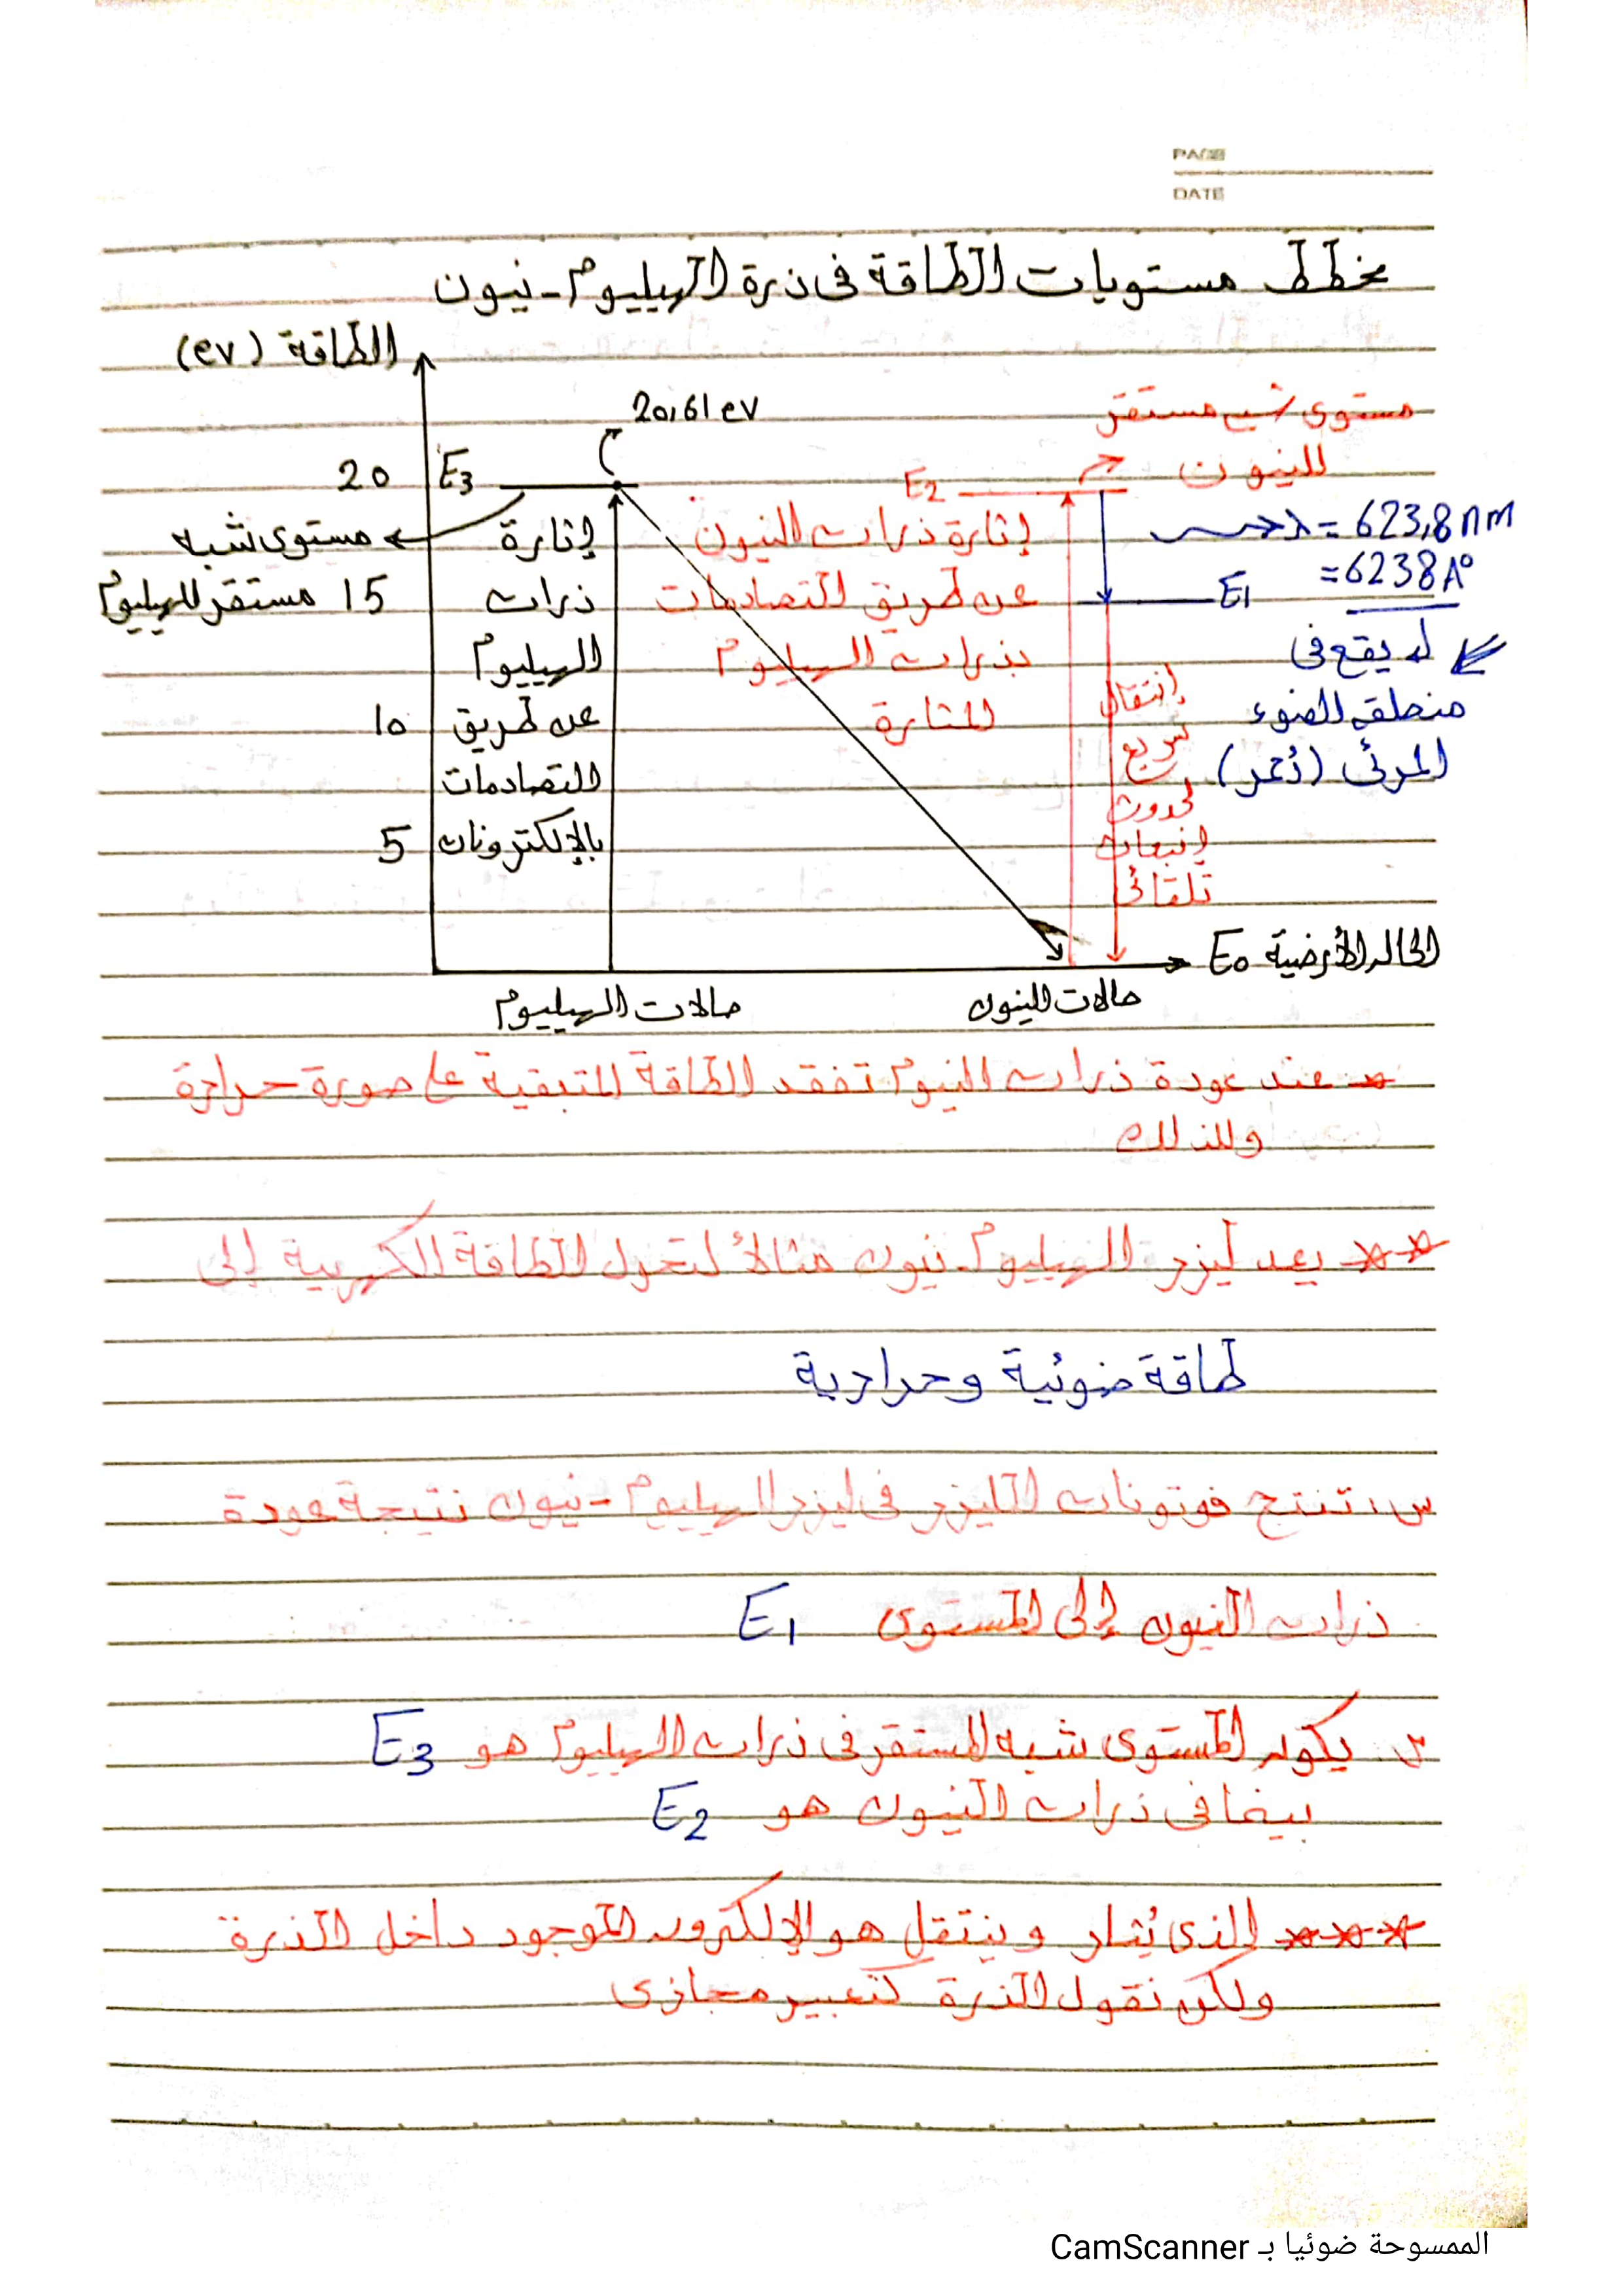 PAGE
DATE
مخطط مستويات الطاقة فى ذرة الهيليوم - نيون
الطاقة (ev)
20,61 ev
مستوى شبه مستقر
للنيون
20
E3
E2
مستوى شبه
مستقر للهيليوم
15
10
5
إثارة
ذرات
الهيليوم
عن طريق
التصادمات
بالإلكترونات
إثارة ذرات النيون
عن طريق التصادمات
بذرات الهيليوم
المثارة
λ = 623,8 nm
= 6238 A°
E1
يقع فى
منطقة الضوء
المرئى (أحمر)
إنتقال
سريع
لحدوث
إنبعاث
تلقائى
E0 الحالة الأرضية
حالات الهيليوم
حالات النيون
عند عودة ذرات النيوم تفقد الطاقة المتبقية على صورة حرارة
ولذلك
** يعد ليزر الهيليوم - نيون مثالاً لتحول الطاقة الكهربية إلى
طاقة ضوئية وحرارية
س: تنتج فوتونات الليزر فى ليزر الهيليوم - نيون نتيجة عودة
ذرات النيون إلى المستوى E1
س. يكون المستوى شبه المستقر فى ذرات الهيليوم هو E3
بينما فى ذرات النيون هو E2
*** الذى يُثار وينتقل هو الإلكترون الموجود داخل الذرة
ولكن نقول الذرة كتعبير مجازى
الممسوحة ضوئيا بـ CamScanner